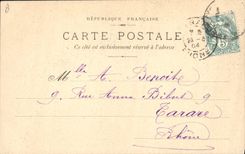 RÉPUBLIQUE FRANÇAISE
CARTE POSTALE
Ce côté est exclusivement réservé à l'adresse
Mlle A. Benoite
9, Rue Anna Bibert 9
Tarare
Rhône